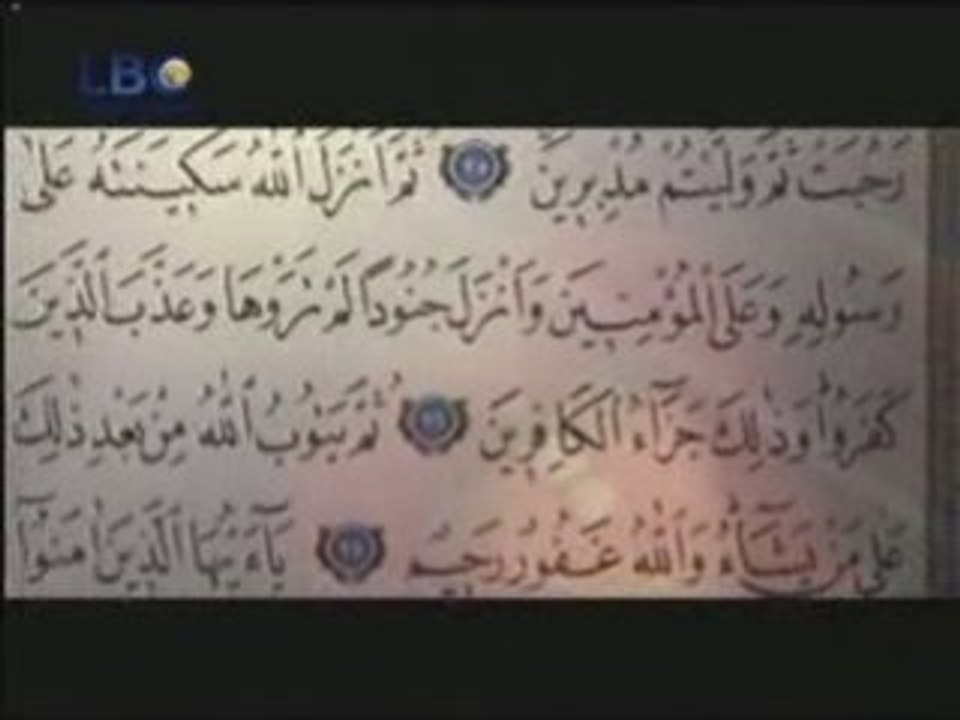 LBC
رَحُبَتْ ثُمَّ وَلَّيْتُم مُّدْبِرِينَ ثُمَّ أَنزَلَ ٱللَّهُ سَكِينَتَهُ عَلَىٰ
رَسُولِهِ وَعَلَى ٱلْمُؤْمِنِينَ وَأَنْزَلَ جُنُودًا لَمْ تَرَوْهَا وَعَذَّبَ ٱلَّذِينَ
كَفَرُوا۟ وَذَٰلِكَ جَزَآءُ ٱلْكَافِرِينَ ثُمَّ يَتُوبُ ٱللَّهُ مِنۢ بَعْدِ ذَٰلِكَ
عَلَىٰ مَن يَشَآءُ وَٱللَّهُ غَفُورٌ رَحِيمٌ يَٰٓأَيُّهَا ٱلَّذِينَ ءَامَنُوٓا۟